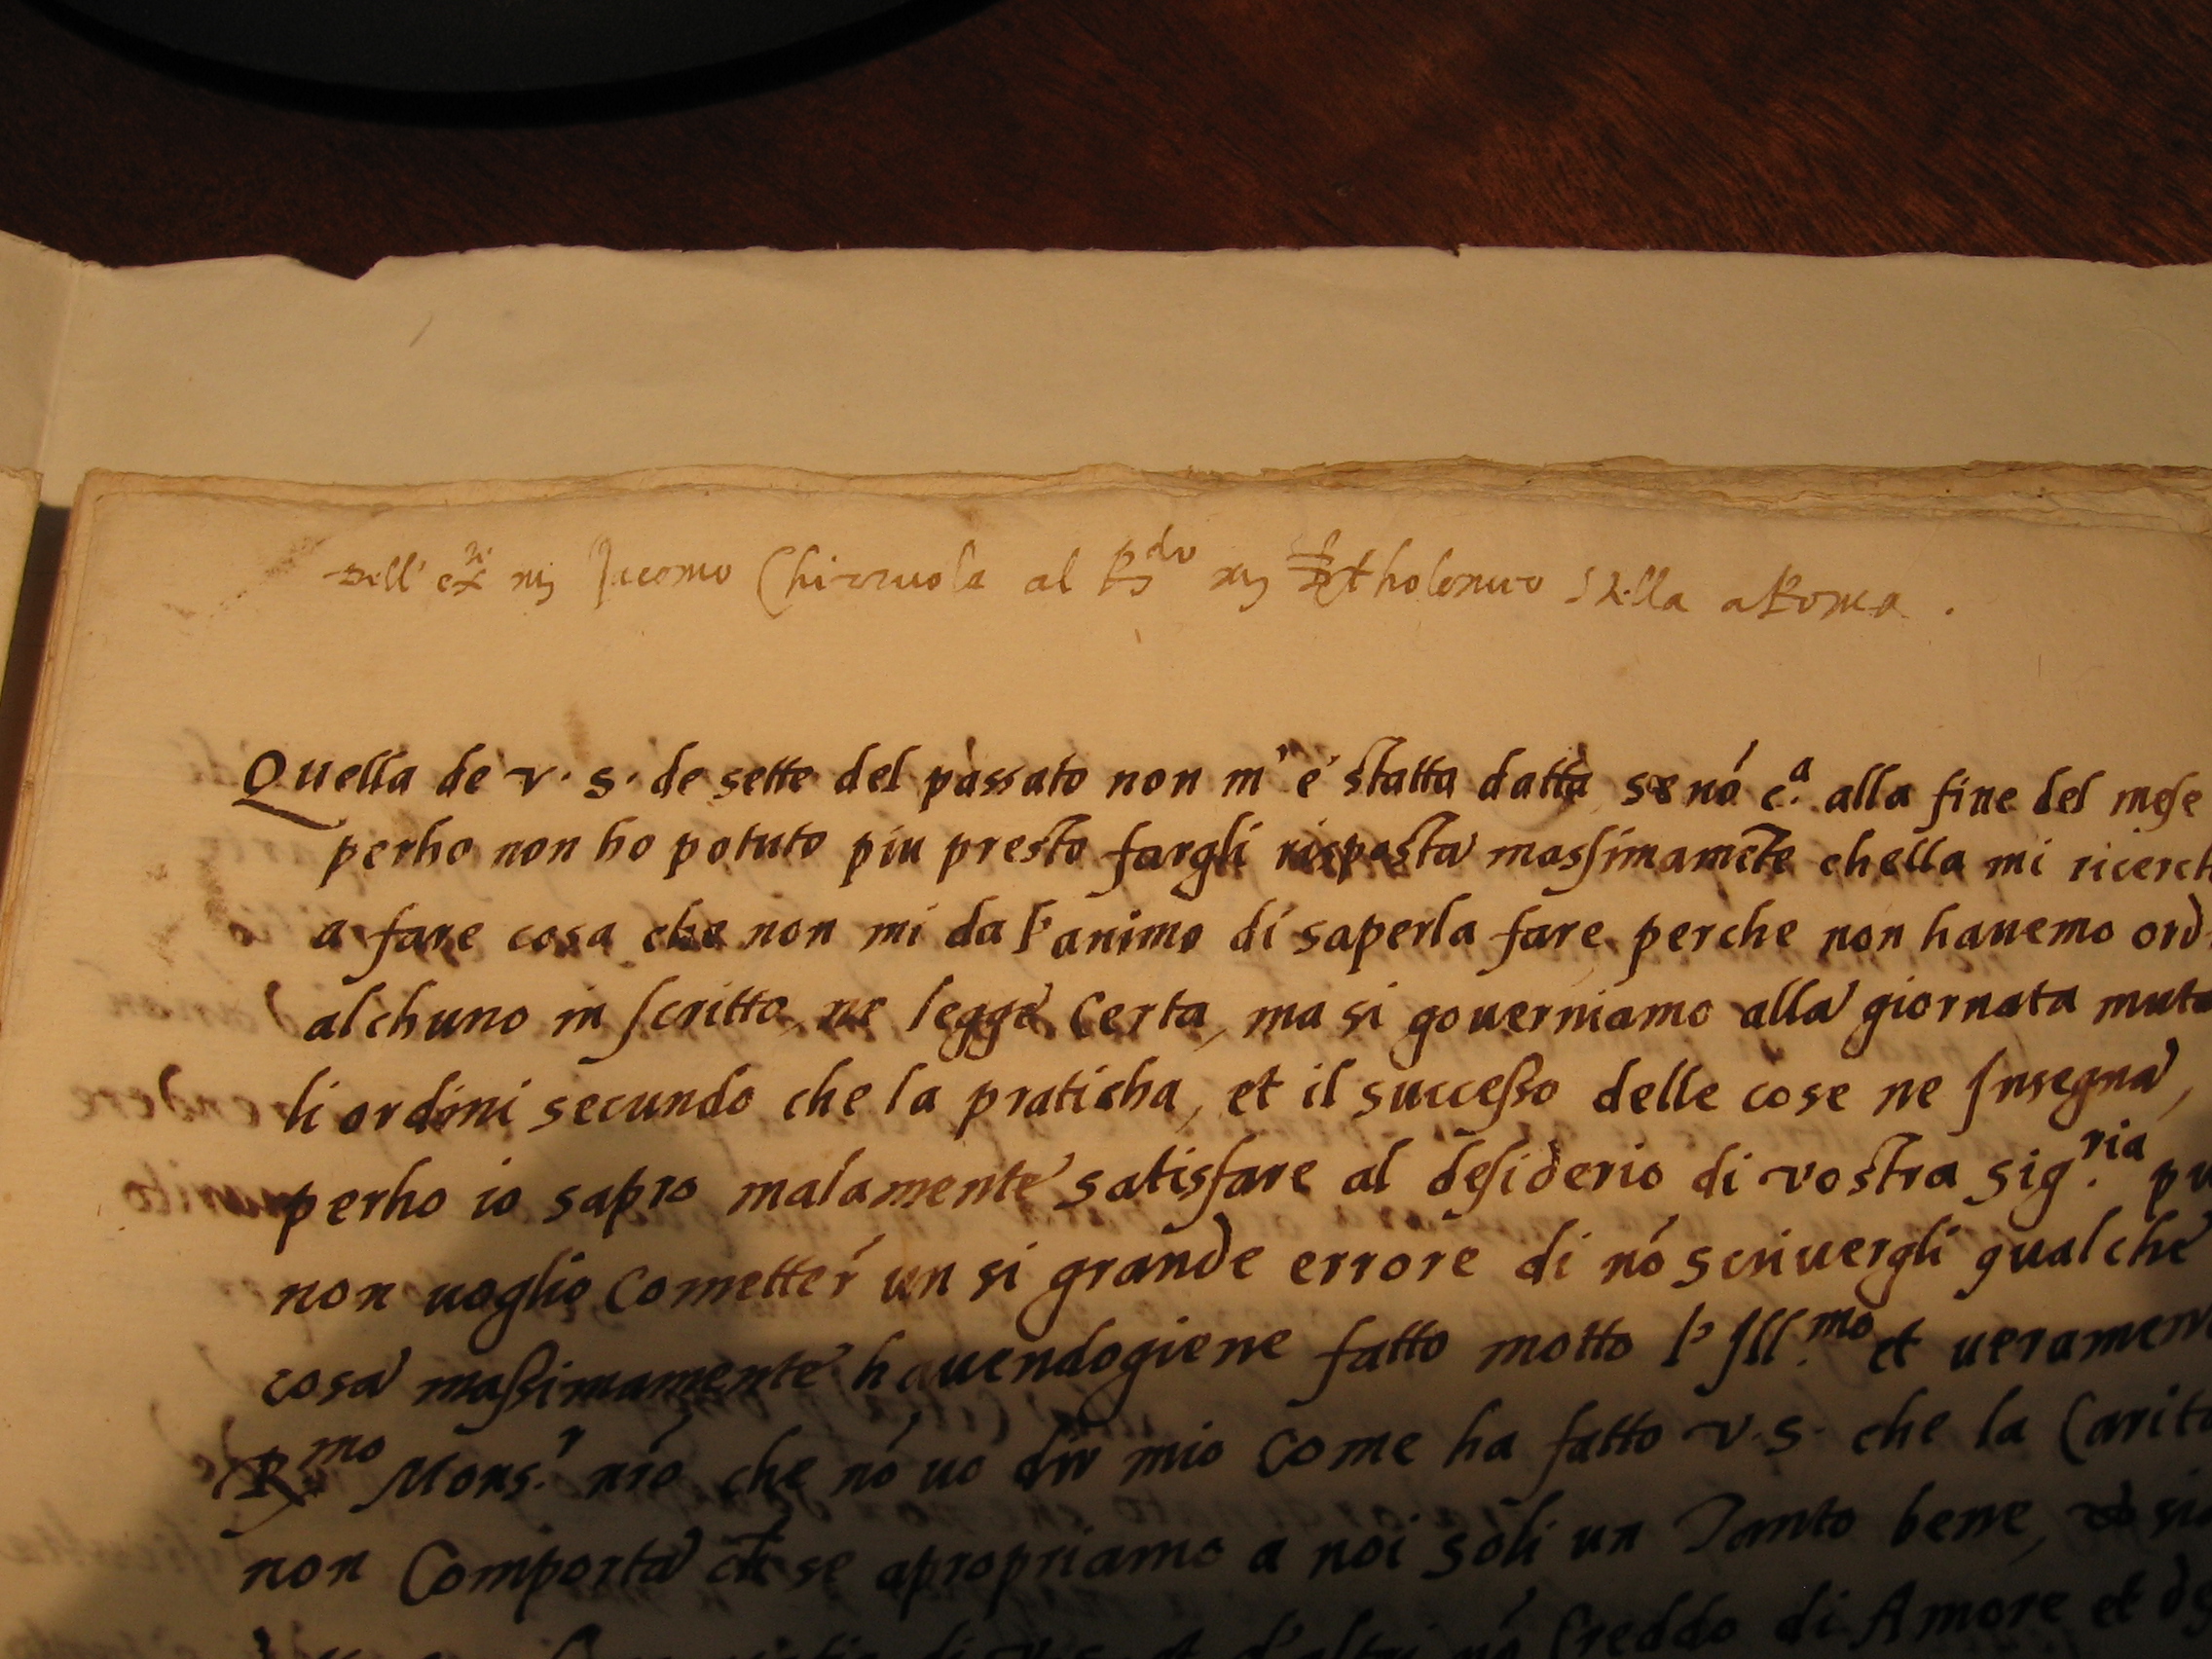 Dell' ex.ti m. Jacomo Chizzuola al R.do m. Bartholomeo Stella a Roma .
Quella de v. s. de sette del passato non m' é statta datta se nó c.a alla fine del mese
perho non ho potuto piu presto fargli risposta massimamẽte chella mi ricerch
a fare cosa che non mi da l'animo di saperla fare perche non hauemo ord
alchuno in scritto, ne legge certa, ma si gouerniamo alla giornata muta
li ordini secundo che la praticha, et il successo delle cose ne Insegna,
perho io sapro malamente satisfare al desiderio di vostra sig.ria pu
non uoglio cometter un si grande errore di nó scriuergli qualche
cosa massimamente hauendogiene fatto motto l' Ill.mo et uerament
R.mo Mons.r nr̃o che nó uo dir mio come ha fatto v. s. che la Carita
non Comporta ch se apropriamo a noi soli un Tanto bene, et si
di v. s. et d'altri nó Creddo di Amore et